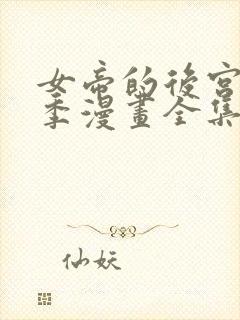 女帝的後宮
季漫畫全集
仙妖